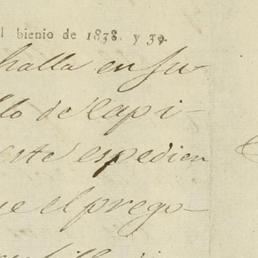 l bienio de 1838. y 39.
halla en su
llo de Capi-
este espedien
ue el prego-